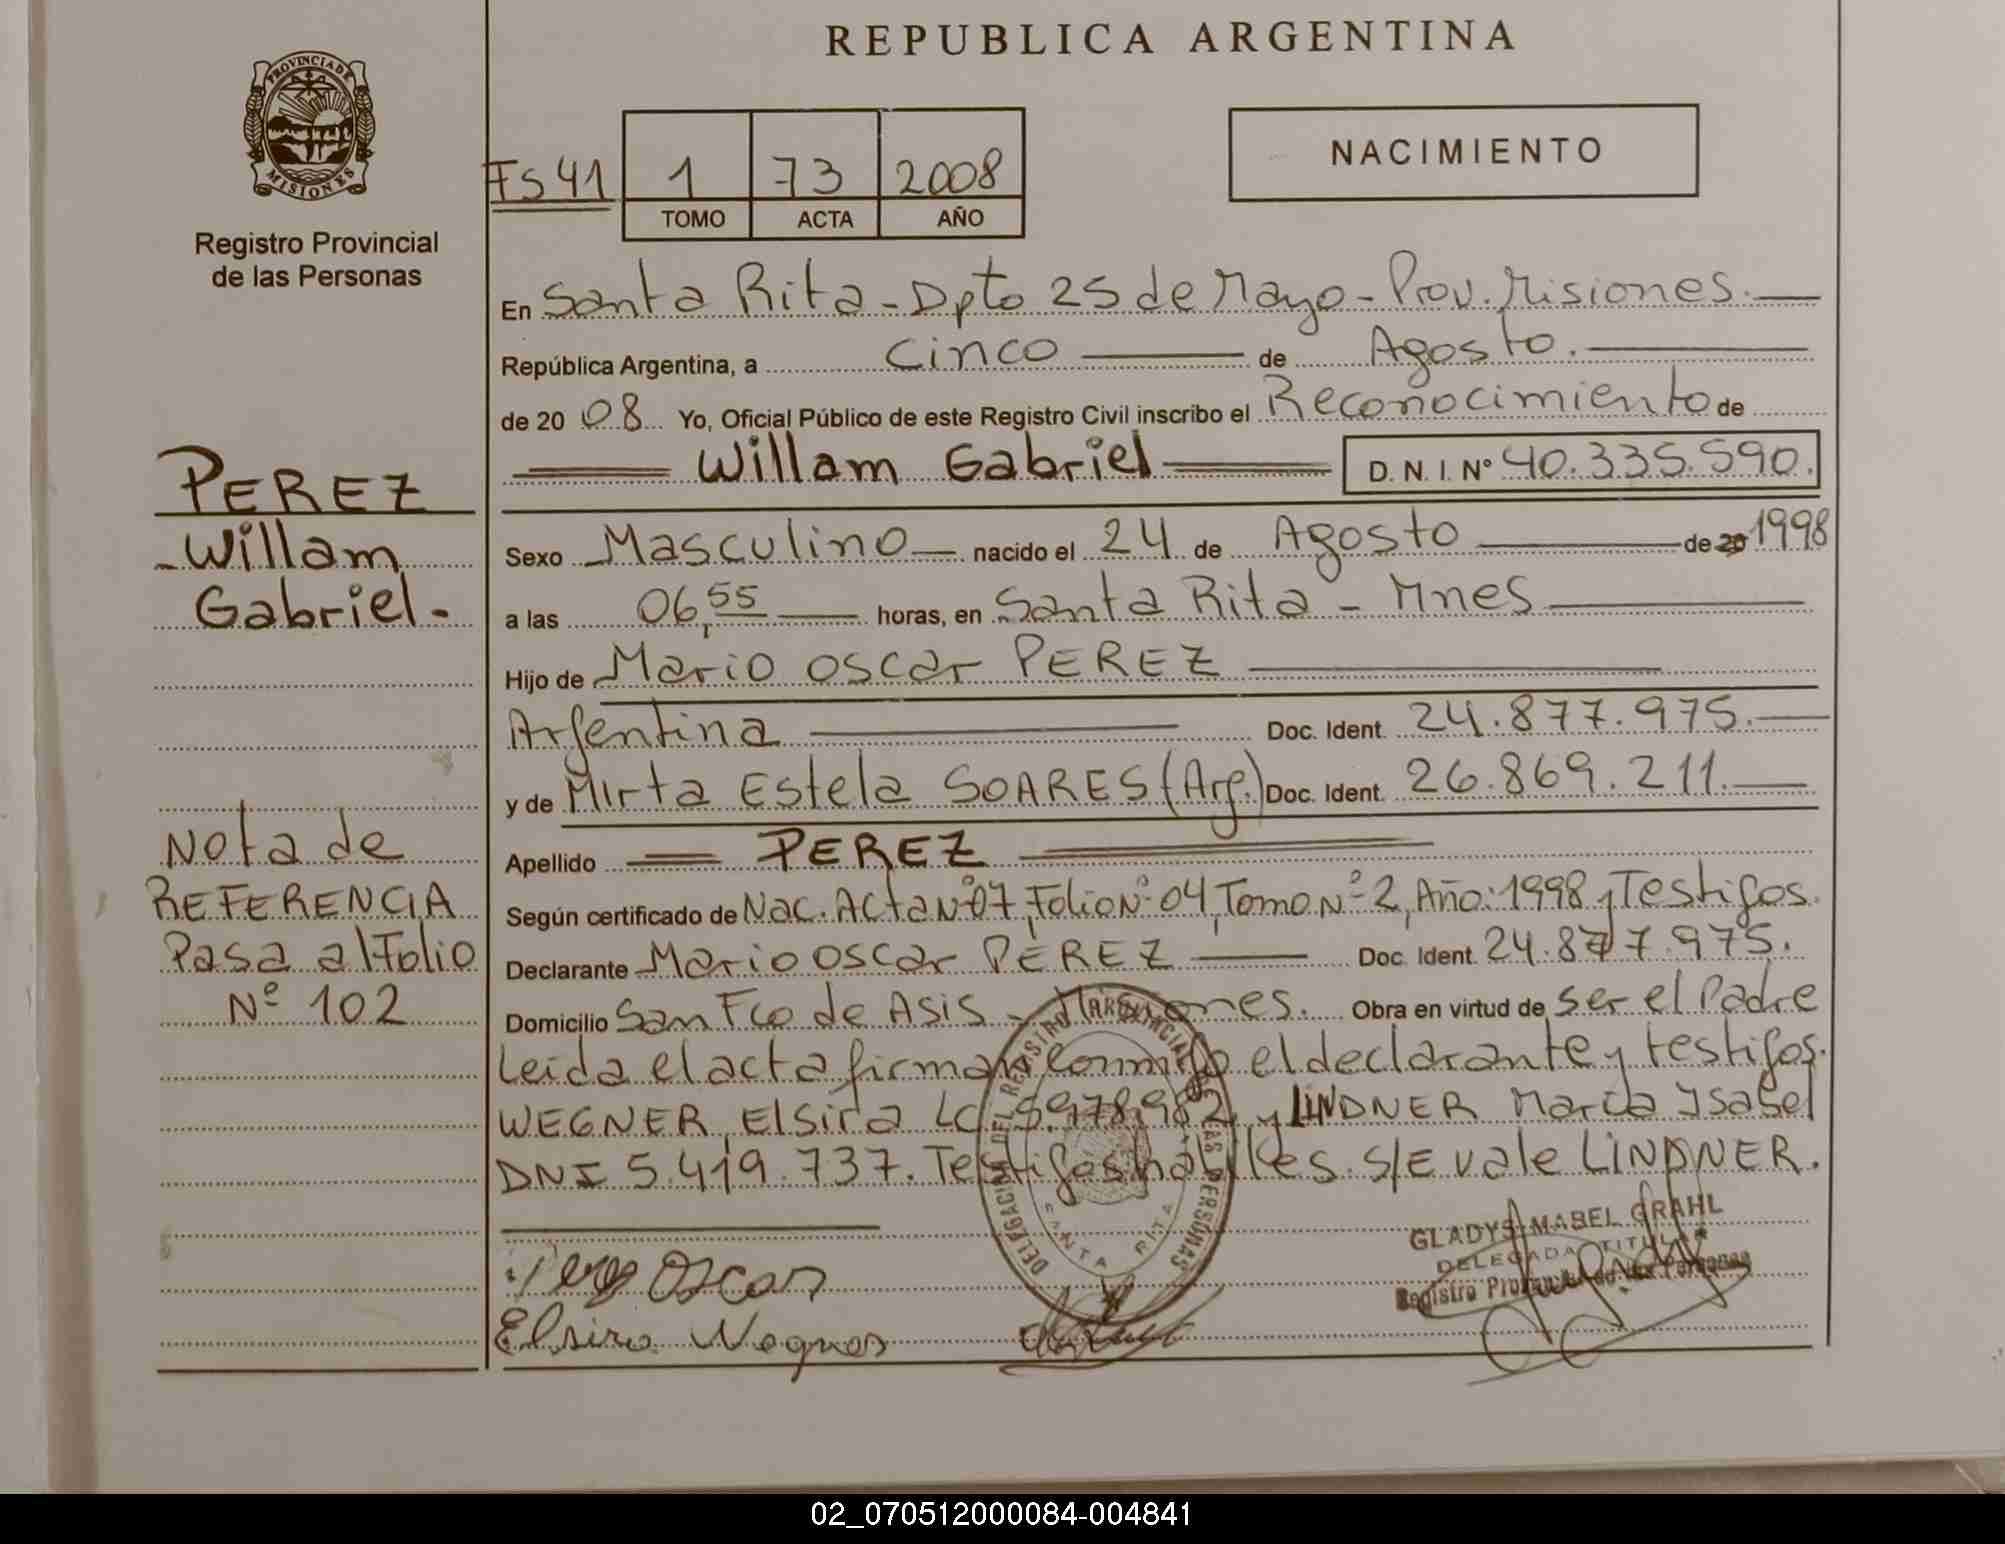 REPUBLICA ARGENTINA
PROVINCIA DE MISIONES
Registro Provincial
de las Personas
NACIMIENTO
Fs 41 1 73 2008
TOMO ACTA AÑO
En Santa Rita - Dpto 25 de Mayo - Prov. Misiones.
República Argentina, a Cinco de Agosto.
de 20 08 Yo, Oficial Público de este Registro Civil inscribo el Reconocimiento de
Willam Gabriel D.N.I. N° 40.335.590.
Sexo Masculino nacido el 24 de Agosto de 20 1998
a las 06,55 horas, en Santa Rita - Mnes
Hijo de Mario Oscar PEREZ
Argentina Doc. Ident. 24.877.975.
y de Mirta Estela SOARES (Arg.) Doc. Ident. 26.869.211.
Apellido PEREZ
Según certificado de Nac. Acta Nº 07, Folio Nº 04, Tomo Nº 2, Año: 1998 y Testigos.
Declarante Mario Oscar PEREZ Doc. Ident. 24.877.975.
Domicilio San Fco de Asis - Misiones. Obra en virtud de ser el Padre
Leida el acta firman conmigo el declarante y testigos.
WEGNER, Elsira LC 5.978.982 y LINDNER Marta Ysabel
DNI 5.419.737. Testigos habiles. S/E vale LINDNER.
PEREZ
Willam
Gabriel.
Nota de
REFERENCIA
Pasa al Folio
Nº 102
DELEGACION DEL REGISTRO PROVINCIAL DE LAS PERSONAS
SANTA RITA
GLADYS MABEL GRAHL
DELEGADA TITULAR
Registro Provincial de las Personas
Perez Oscar
Elsira Wegner
02_070512000084-004841